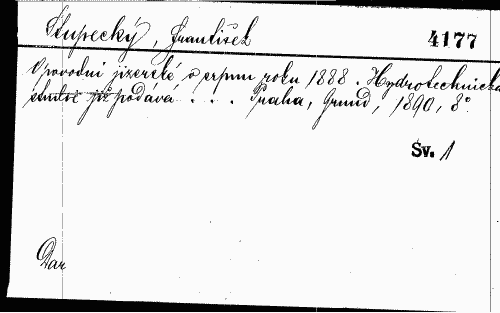 Stupecký, František
4177
O povodni jizerské v srpnu roku 1888. Hydrotechnická
podává . . . Praha, Grund, 1890, 8°.
Sv. 1
Dar